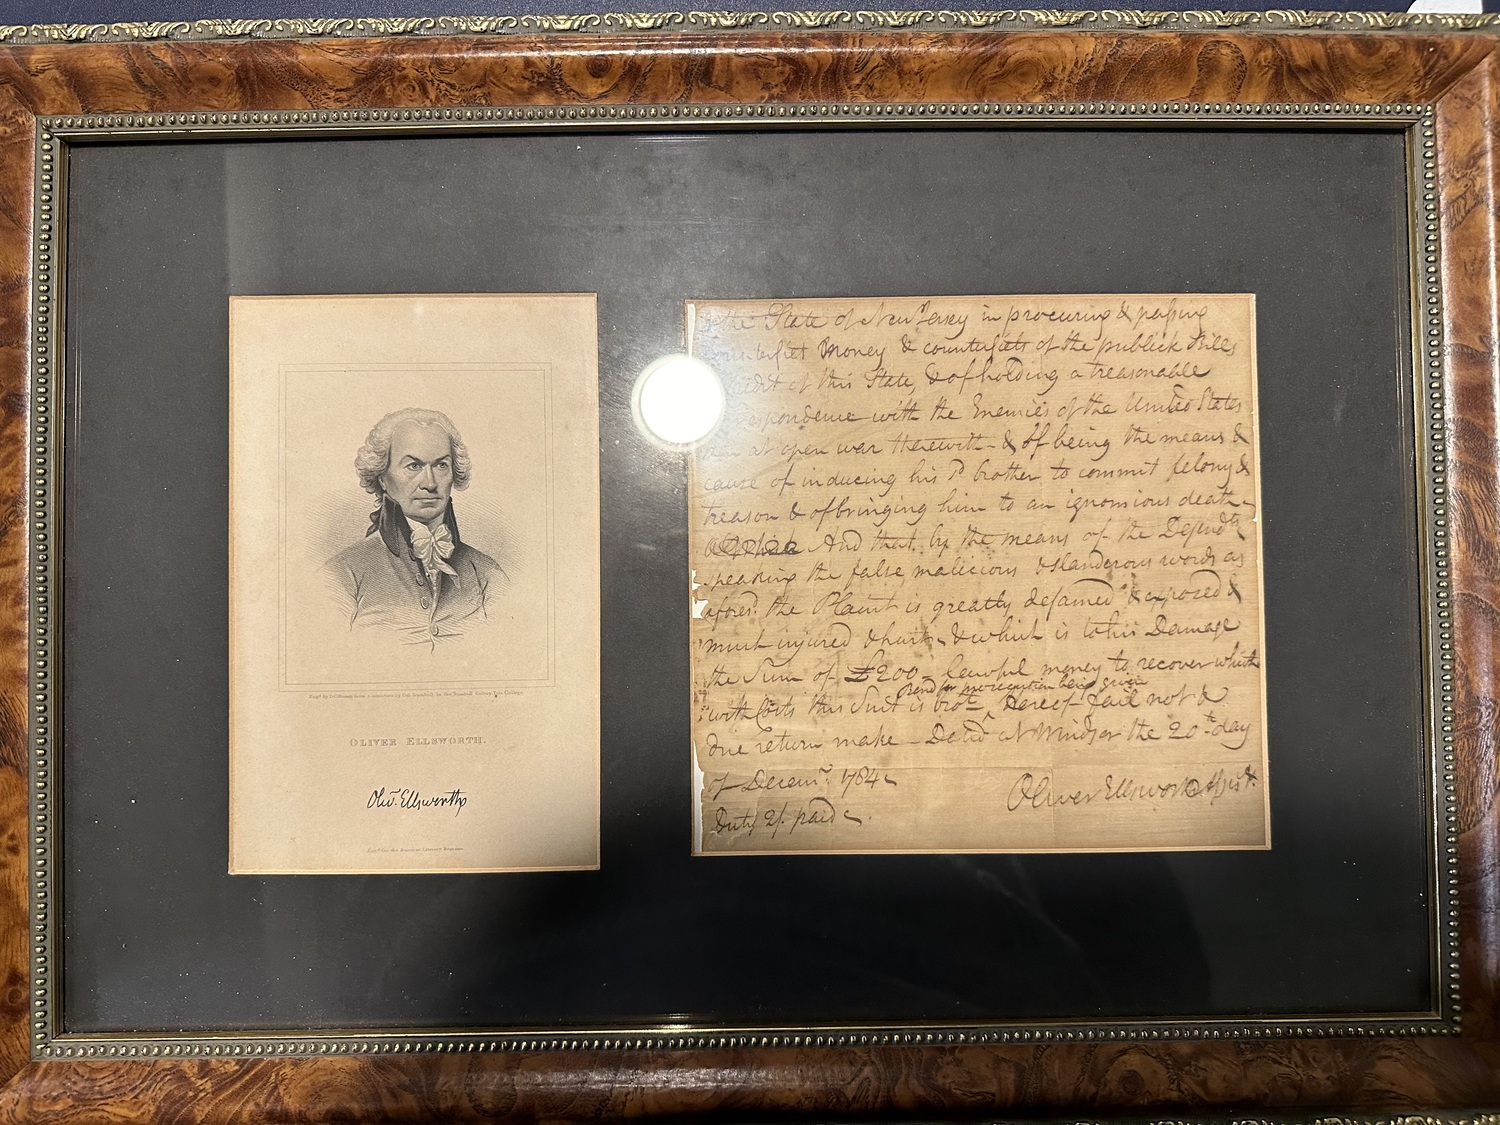 OLIVER ELLSWORTH.
Olivr. Ellsworth
the State of New Jersey in procuring & passing
counterfiet Money & counterfiets of the publick Bills
of this State, & of holding a treasonable
with the Enemies of the United States
at open war therewith - & of being the means &
cause of inducing his sd brother to commit felony &
treason & of bringing him to an ignomious death
And that by the means of the Defendts
speaking the false, malicious & slanderous words as
aforesd. the Plaint is greatly defamed & exposed &
much injured & hurt, & which is to his Damage
the Sum of £200 - lawful money to recover which
Bond for prosecution being given
with Costs this Suit is brot. Hereof fail not &
due return make - Dated At Windsor the 20th day
of Decemr. 1784
Oliver Ellsworth Assist.
Duty 2/. paid